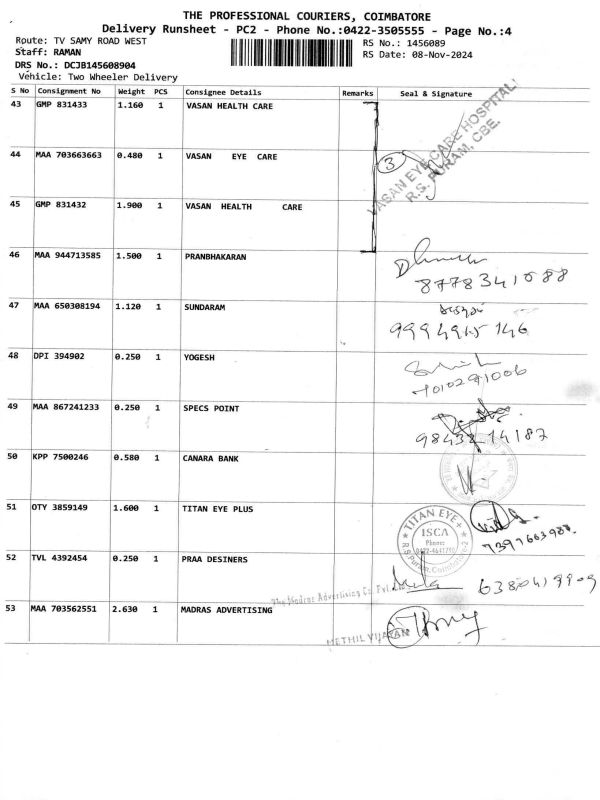 THE PROFESSIONAL COURIERS, COIMBATORE
Delivery Runsheet - PC2 - Phone No.:0422-3505555 - Page No.:4
Route: TV SAMY ROAD WEST RS No.: 1456089
Staff: RAMAN RS Date: 08-Nov-2024
DRS No.: DCJB145608904
Vehicle: Two Wheeler Delivery
S No Consignment No Weight PCS Consignee Details Remarks Seal & Signature
43 GMP 831433 1.160 1 VASAN HEALTH CARE
VASAN EYE CARE HOSPITAL
R.S. PURAM, CBE.
44 MAA 703663663 0.480 1 VASAN EYE CARE 3
45 GMP 831432 1.900 1 VASAN HEALTH CARE
46 MAA 944713585 1.500 1 PRANBHAKARAN
47 MAA 650308194 1.120 1 SUNDARAM
48 DPI 394902 0.250 1 YOGESH
7010291006
49 MAA 867241233 0.250 1 SPECS POINT
50 KPP 7500246 0.580 1 CANARA BANK
51 OTY 3859149 1.600 1 TITAN EYE PLUS
TITAN EYE+
ISCA
Phone:
R.S.Puram, Coimbatore-2
7397663987.
52 TVL 4392454 0.250 1 PRAA DESINERS
6380419909
The Madras Advertising Co. Pvt.
53 MAA 703562551 2.630 1 MADRAS ADVERTISING
METHIL VIJAYAN